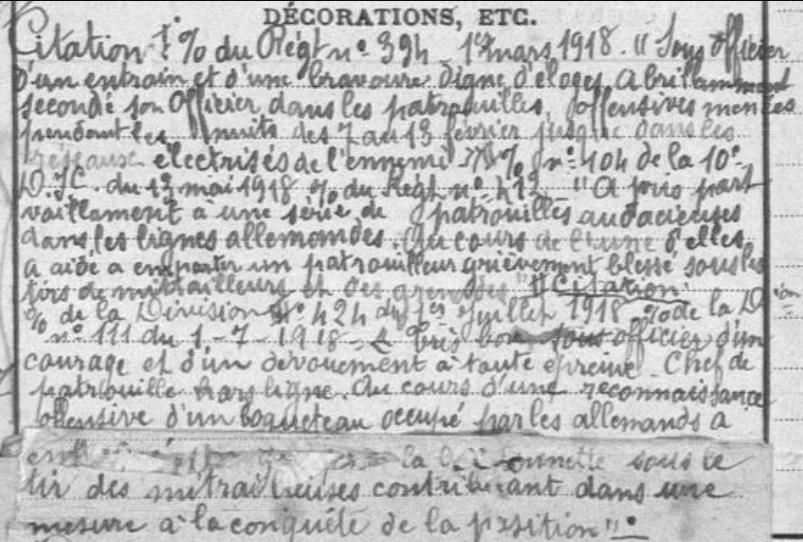 DÉCORATIONS, ETC.
Citation % du Régt n° 394 1er mars 1918. "Sous officier
d'un entrain et d'une bravoure digne d'éloges. A brillamment
secondé son Officier dans les patrouilles offensives menées
pendant les nuits des 7 au 13 février jusque dans les
réseaux électrisés de l'ennemi % n° 104 de la 10e
D.I.C. du 13 mai 1918 % du Régt n° 412 "A pris part
vaillament à une série de patrouilles audacieuses
dans les lignes allemandes. Au cours de l'une d'elles
a aidé a emporter un patrouilleur grièvement blessé sous les
tirs de mitrailleurs et des grenades" Citation
% de la Division N° 424 du 1er Juillet 1918 % de la D
n° 111 du 1-7-1918 Très bon sous officier d'un
courage et d'un dévouement à toute épreuve. Chef de
patrouille hors ligne. Au cours d'une reconnaissance
offensive d'un boqueteau occupé par les allemands a
la baïonnette sous le
tir des mitrailleuses contribuant dans une
mesure à la conquête de la position".